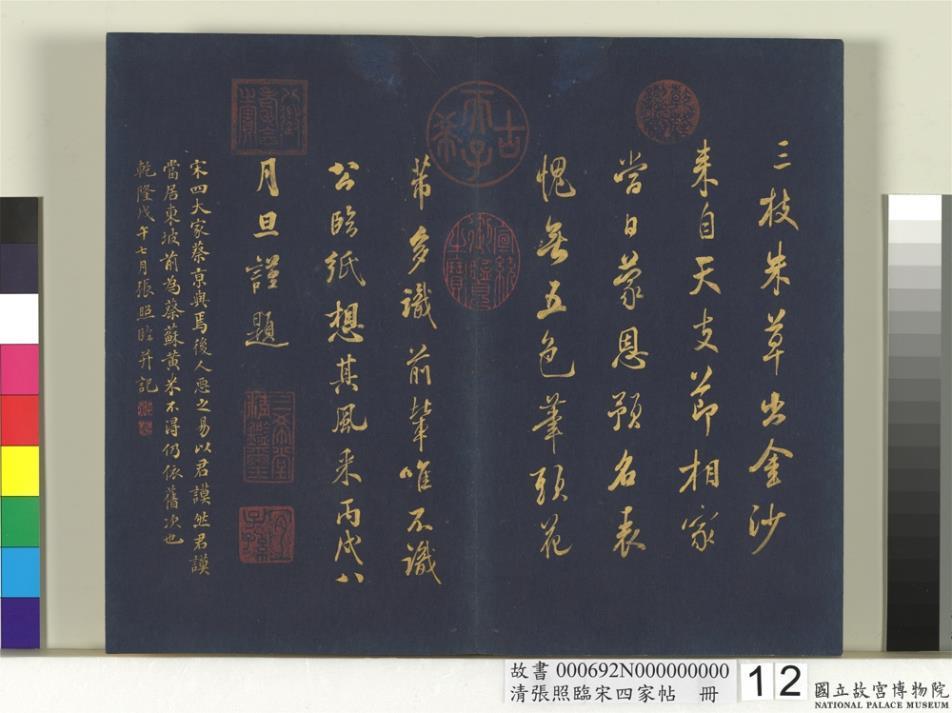 三枝朱草出金沙
来自天支節相家
當日蒙恩預名表
愧無五色筆頭花
芾多識前輩唯不識
公臨紙想其風采丙戌八
月旦謹題
宋四大家蔡京與焉後人惡之易以君謨然君謨
當居東坡前為蔡蘇黃米不得仍依舊次也
乾隆戊午七月張照臨并記
古希天子
八徵耄念之寶
三希堂精鑑璽
宜子孫
乾隆鑑賞
宣統御覽之寶
故書 000692N000000000
清張照臨宋四家帖 冊
12
國立故宮博物院
NATIONAL PALACE MUSEUM